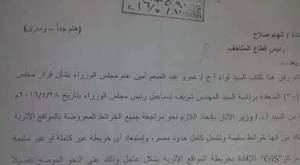 (هام جداً – وسري)
إلهام صلاح
رئيس قطاع المتاحف
وبعد،
رفق هذا كتاب السيد لواء أ.ح / عمرو عبد المنعم أمين عام مجلس الوزراء بشأن قرار مجلس
المنعقدة برئاسة السيد المهندس شريف إسماعيل رئيس مجلس الوزراء بتاريخ ٢٠١٦/٤/٢٨م
السيد أ.د/ وزير الآثار باتخاذ اللازم نحو مراجعة جميع الخرائط المعروضة بالمواقع الأثرية
من أنها خرائط سليمة وتشمل كامل حدود مصر، وإستبعاد أى خريطة غير كاملة أو غير سليمة
"GIS" لإفادة خريطة المواقع الأثرية بشكل عاجل وذلك على النحو الموضح تفصيلاً